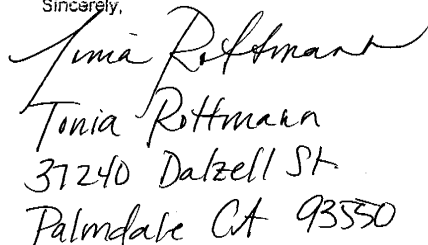 Sincerely,
Tonia Rottmann
Tonia Rottmann
37240 Dalzell St.
Palmdale CA 93550